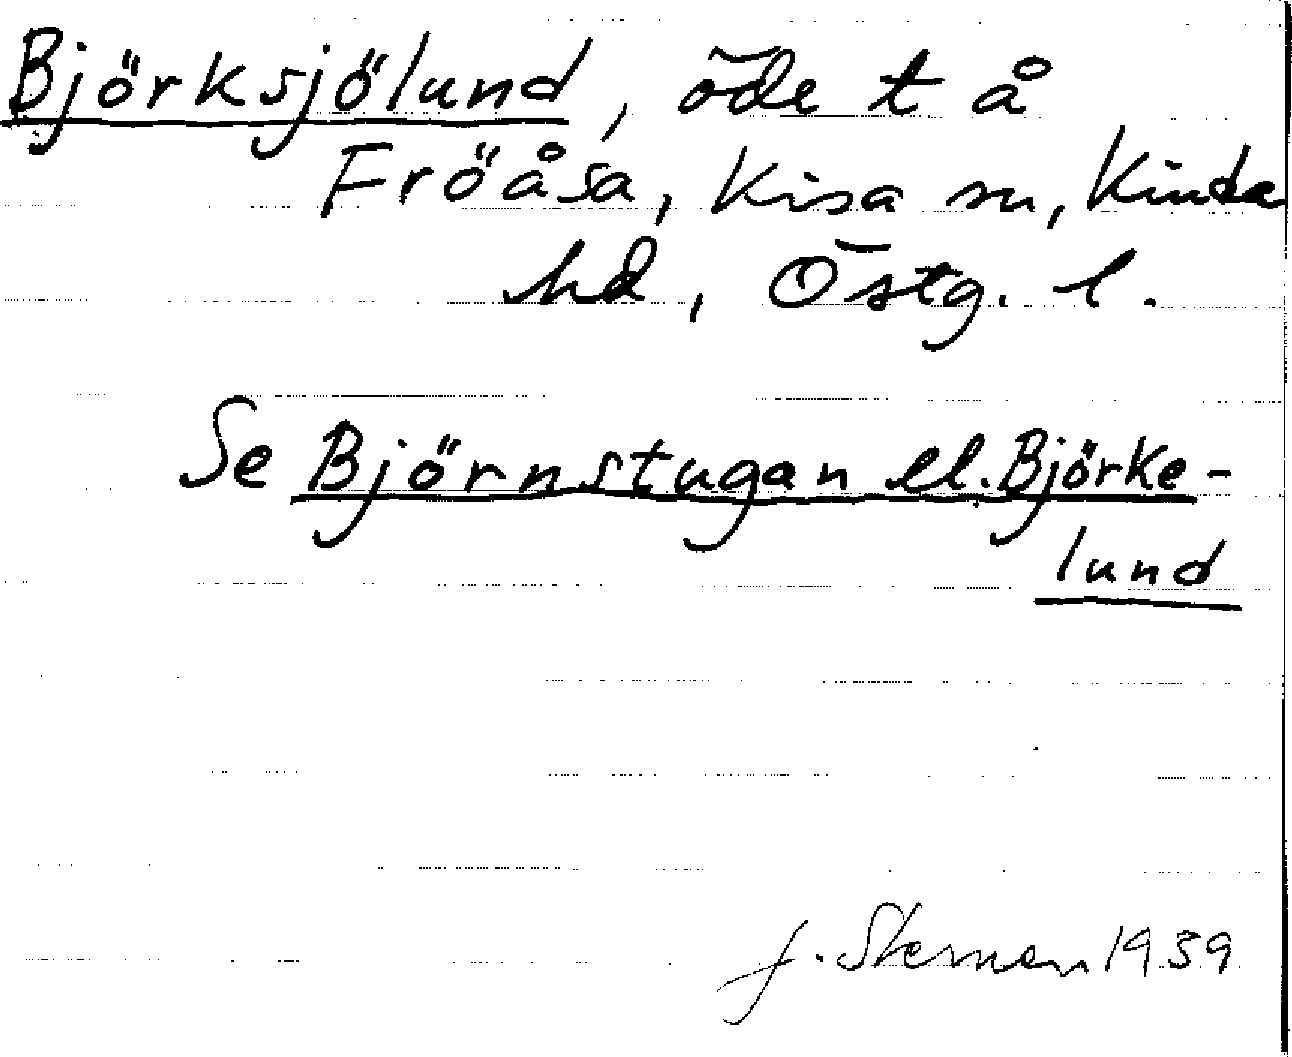 Björksjölund, öde t å
Fröåsa, Kisa sn, Kinda
hd, Östg. l.
Se Björnstugan el. Björke-
lund
J. Sterner 1939